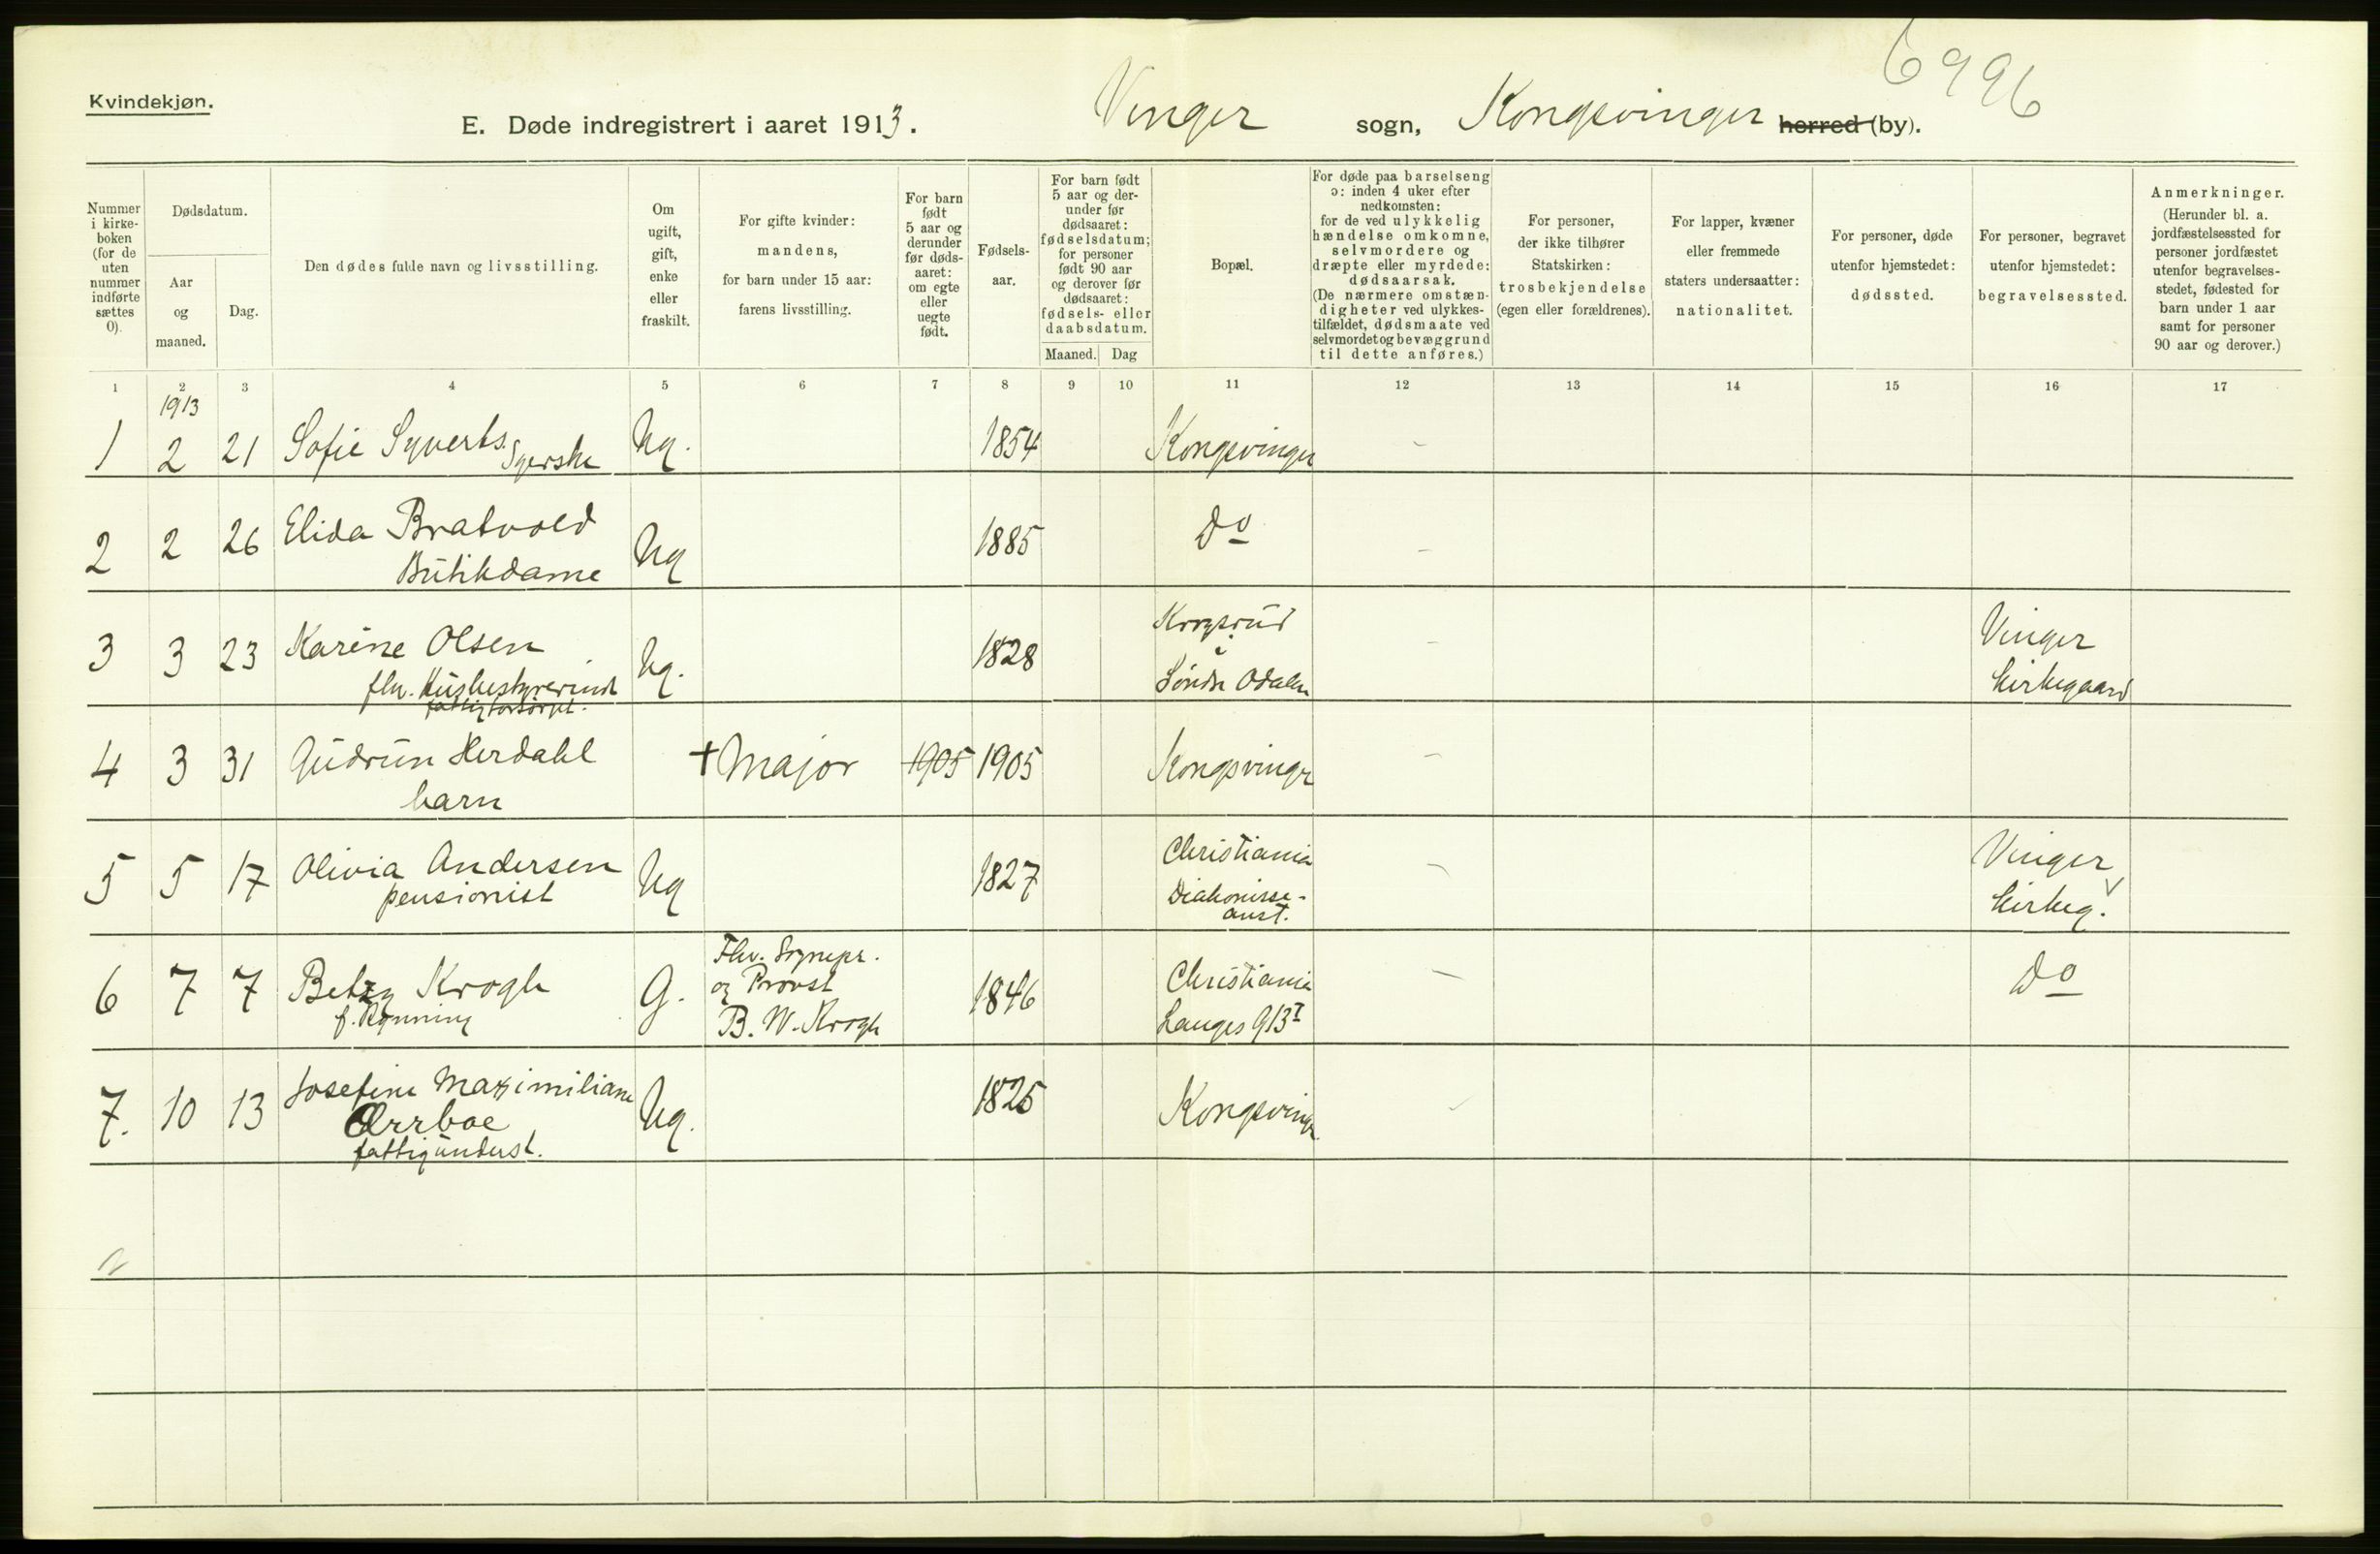 6996
Kvindekjøn.
E. Døde indregistrert i aaret 1913. Vinger sogn, Kongsvinger herred (by).
Nummer i kirke-boken (for de uten nummer indførte sættes 0).
Dødsdatum.
Aar og maaned.
Dag.
Den dødes fulde navn og livsstilling.
Om ugift, gift, enke eller fraskilt.
For gifte kvinder: mandens, for barn under 15 aar: farens livsstilling.
For barn født 5 aar og derunder før døds-aaret: om egte eller uegte født.
Fødsels-aar.
For barn født 5 aar og der-under før dødsaaret: fødselsdatum; for personer født 90 aar og derover før dødsaaret: fødsels- eller daabsdatum.
Maaned. Dag
Bopæl.
For døde paa barselseng ɔ: inden 4 uker efter nedkomsten: for de ved ulykkelig hændelse omkomne, selvmordere og dræpte eller myrdede: dødsaarsak. (De nærmere omstæn-digheter ved ulykkes-tilfældet, dødsmaate ved selvmordet og bevæggrund til dette anføres.)
For personer, der ikke tilhører Statskirken: trosbekjendelse (egen eller forældrenes).
For lapper, kvæner eller fremmede staters undersaatter: nationalitet.
For personer, døde utenfor hjemstedet: dødssted.
For personer, begravet utenfor hjemstedet: begravelsessted.
Anmerkninger. (Herunder bl. a. jordfæstelsessted for personer jordfæstet utenfor begravelses-stedet, fødested for barn under 1 aar samt for personer 90 aar og derover.)
1 2 3 4 5 6 7 8 9 10 11 12 13 14 15 16 17
1913
1 2 21 Sofie Syverts. Syerske Ug. 1854 Kongsvinger -
2 2 26 Elida Bratvold Ug 1885 Do -
Butikdame
3 3 23 Karine Olsen Ug. 1828 Kongsrud - Vinger
flv. Husbestyrerinde i Søndre Odalen kirkegaard
fattigforsørget.
4 3 31 Gudrun Herdahl + Major 1905 1905 Kongsvinger -
barn
5 5 17 Olivia Andersen Ug 1827 Christiania - Vinger
pensionist Diakonisse-anst. kirkeg.
6 7 7 Betzy Krogh G. Flv. Sognepr. 1846 Christiania - Do
f. Rynning og Provst Langes g 13 I
B. W. Krogh
7. 10 13 Josefine Maximiliane Ug. 1825 Kongsvinger
Ørrboe
fattigunderst.